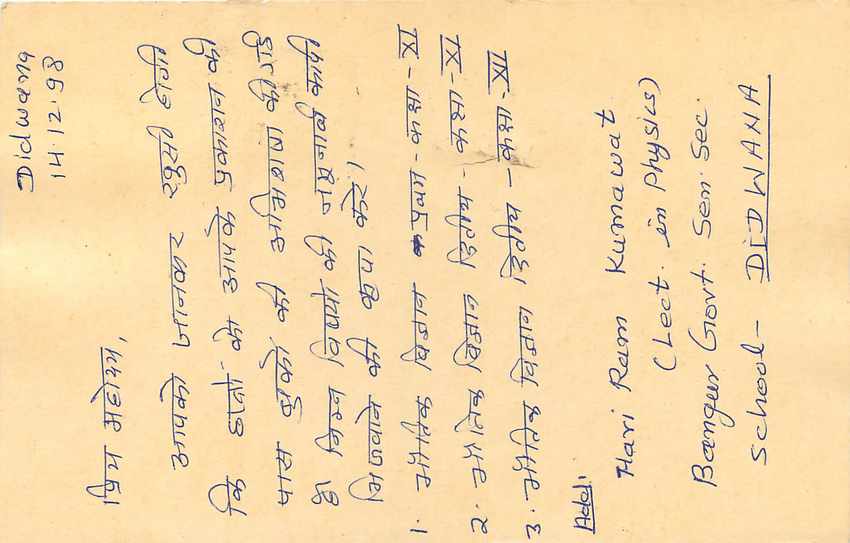 Didwana
14.12.98
प्रिय महोदय,
आपको जानकर हर्ष होगा
कि छात्रों को आपके प्रकाशन की
पास बुकों की अभिलाषा की हुई
है निम्न विषयों की नमूनार्थ कापी
भिजवाने की कृपा करें।
1. भौतिक विज्ञान प्रथम - कक्षा - XI
2. भौतिक विज्ञान द्वितीय - कक्षा - XI
3. भौतिक विज्ञान द्वितीय - कक्षा - XII
Add:
Hari Ram Kumawat
(Lect. in Physics)
Bangur Govt. Sen. Sec.
School - DIDWANA